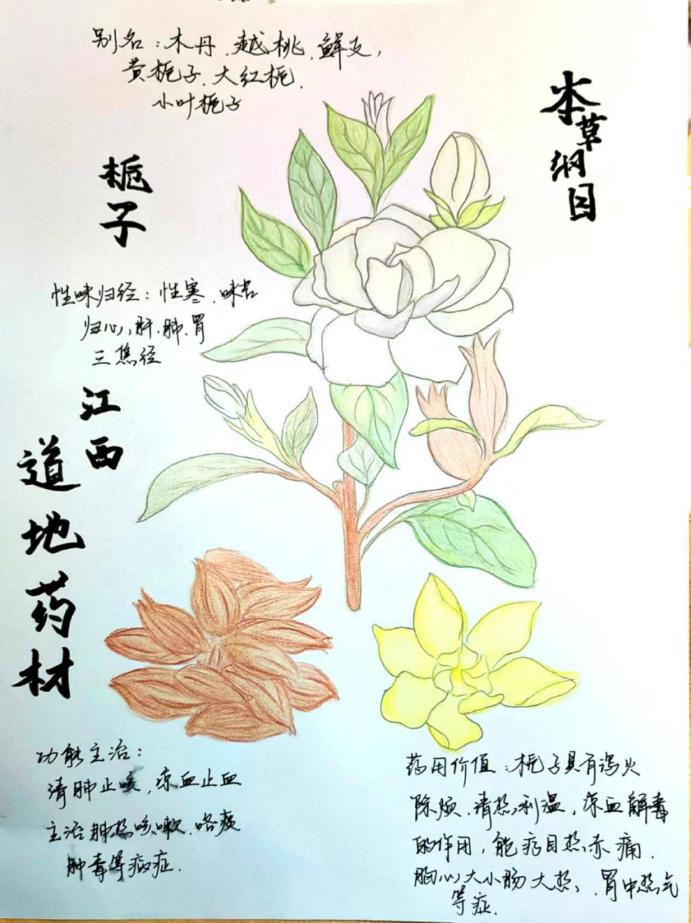 别名：木丹、越桃、鲜支，
黄栀子、大红栀、
小叶栀子
本草纲目
栀子
性味归经：性寒、味苦
归心，肝、肺、胃
三焦经
江西
道地药材
功能主治：
清肺止咳，凉血止血
主治肺热咳嗽、咯痰
肿毒等病症.
药用价值：栀子具有泻火
除烦、清热利温，凉血解毒
的作用，能疗目热赤痛、
胸心大小肠大热、胃中热气
等症.